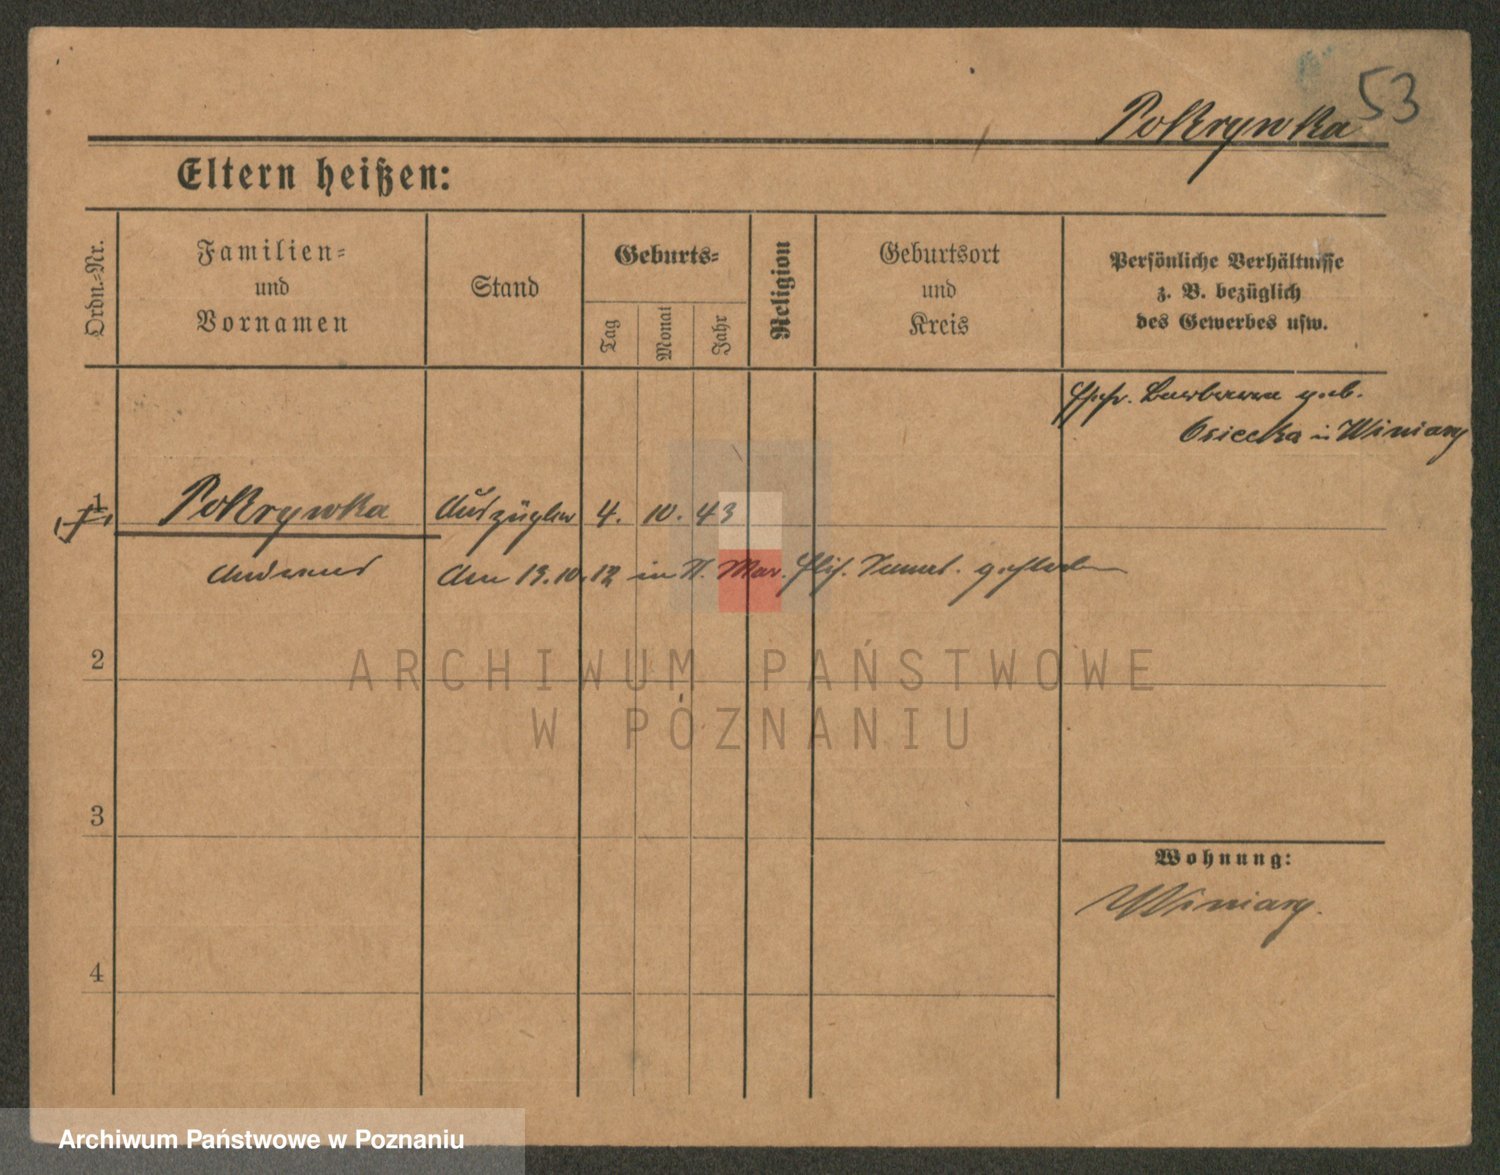 53
Pokrywka
Eltern heißen:
Ordn.-Nr.
Familien-
und
Vornamen
Stand
Geburts-
Tag
Monat
Jahr
Religion
Geburtsort
und
Kreis
Persönliche Verhältnisse
z. B. bezüglich
des Gewerbes usw.
Ehefr. Barbara geb.
Osiecka in Winiary
1
Pokrywka
Auszügler 4. 10. 43
Andreas
Am 13.10.12 in St. Mar. gestorben
2
3
4
Wohnung:
Winiary.
ARCHIWUM PAŃSTWOWE
W POZNANIU
Archiwum Państwowe w Poznaniu